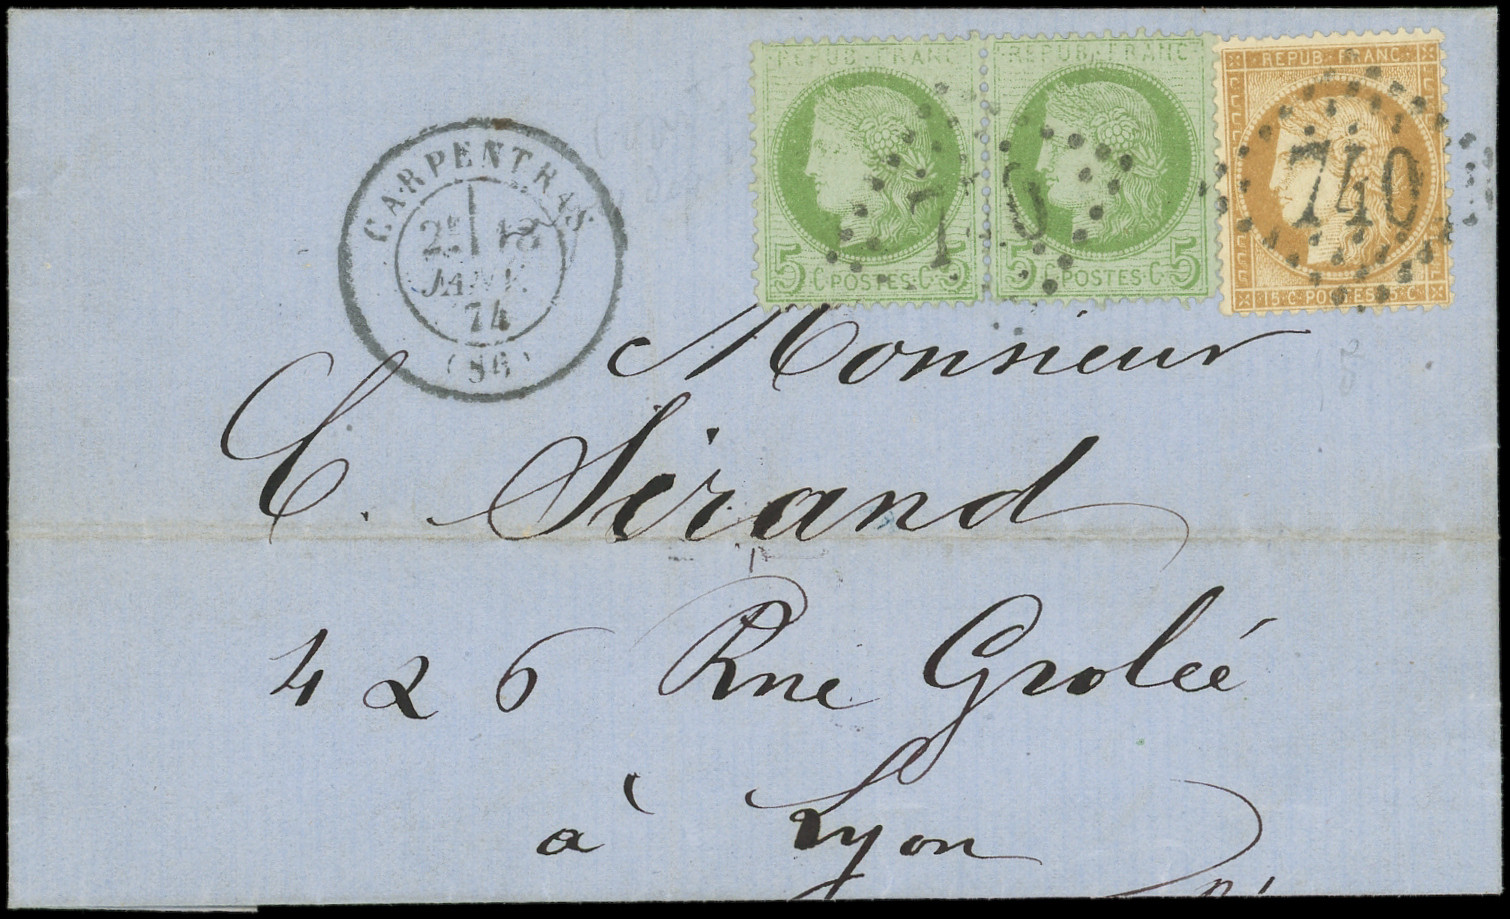 REPUB·FRANC
5 C·POSTES·C 5
REPUB·FRANC
5 C·POSTES·C 5
REPUB·FRANC
15·C·POSTES·15·C
740
740
CARPENTRAS
2E 18
JANV.
74
(86)
Monsieur
C. Sérand
426 Rue Grolée
à Lyon